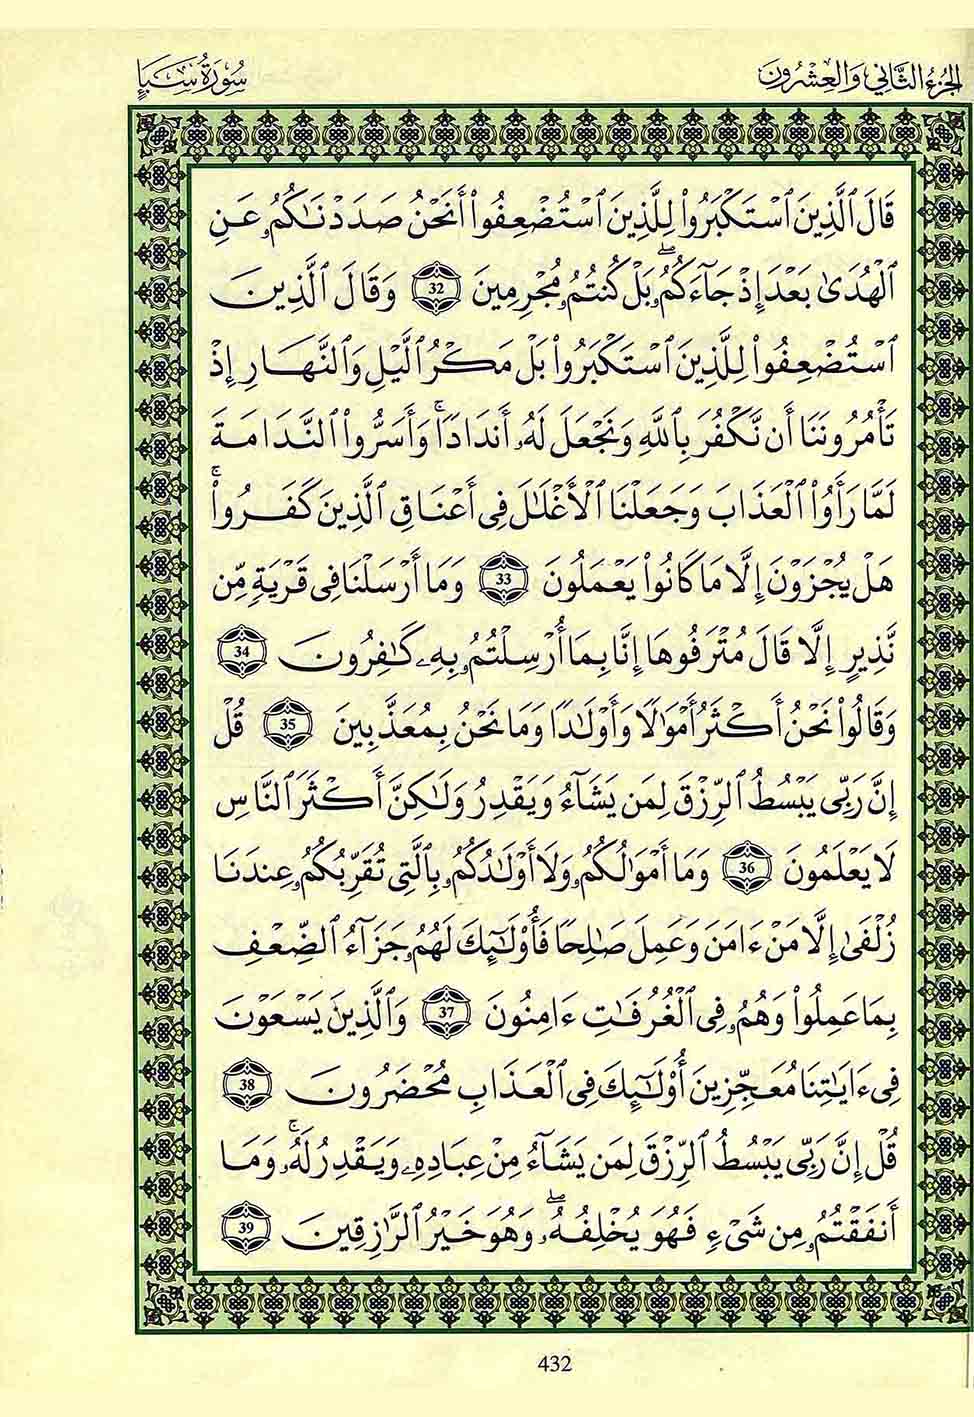 الجزء الثاني والعشرون
سورة سبإ
قَالَ ٱلَّذِينَ ٱسْتَكْبَرُوا۟ لِلَّذِينَ ٱسْتُضْعِفُوٓا۟ أَنَحْنُ صَدَدْنَـٰكُمُۥ عَنِ
ٱلْهُدَىٰ بَعْدَ إِذْ جَآءَكُمُۖۥ بَلْ كُنتُمُۥ مُجْرِمِينَ 32 وَقَالَ ٱلَّذِينَ
ٱسْتُضْعِفُوا۟ لِلَّذِينَ ٱسْتَكْبَرُوا۟ بَلْ مَكْرُ ٱلَّيْلِ وَٱلنَّهَارِ إِذْ
تَأْمُرُونَنَا أَن نَّكْفُرَ بِٱللَّهِ وَنَجْعَلَ لَهُۥ أَندَادًاۚ وَأَسَرُّوا۟ ٱلنَّدَامَةَ
لَمَّا رَأَوُا۟ ٱلْعَذَابَ وَجَعَلْنَا ٱلْأَغْلَـٰلَ فِى أَعْنَاقِ ٱلَّذِينَ كَفَرُوا۟ۚ
هَلْ يُجْزَوْنَ إِلَّا مَا كَانُوا۟ يَعْمَلُونَ 33 وَمَا أَرْسَلْنَا فِى قَرْيَةٍ مِّن
نَّذِيرٍ إِلَّا قَالَ مُتْرَفُوهَا إِنَّا بِمَا أُرْسِلْتُمُۥ بِهِۦ كَـٰفِرُونَ 34
وَقَالُوا۟ نَحْنُ أَكْثَرُ أَمْوَٰلًا وَأَوْلَـٰدًا وَمَا نَحْنُ بِمُعَذَّبِينَ 35 قُلْ
إِنَّ رَبِّى يَبْسُطُ ٱلرِّزْقَ لِمَن يَشَآءُ وَيَقْدِرُ وَلَـٰكِنَّ أَكْثَرَ ٱلنَّاسِ
لَا يَعْلَمُونَ 36 وَمَا أَمْوَٰلُكُمُۥ وَلَا أَوْلَـٰدُكُمُۥ بِٱلَّتِى تُقَرِّبُكُمُۥ عِندَنَا
زُلْفَىٰ إِلَّا مَنْ ءَامَنَ وَعَمِلَ صَـٰلِحًا فَأُو۟لَـٰٓئِكَ لَهُمُۥ جَزَآءُ ٱلضِّعْفِ
بِمَا عَمِلُوا۟ وَهُمُۥ فِى ٱلْغُرُفَـٰتِ ءَامِنُونَ 37 وَٱلَّذِينَ يَسْعَوْنَ
فِىٓ ءَايَـٰتِنَا مُعَجِّزِينَ أُو۟لَـٰٓئِكَ فِى ٱلْعَذَابِ مُحْضَرُونَ 38
قُلْ إِنَّ رَبِّى يَبْسُطُ ٱلرِّزْقَ لِمَن يَشَآءُ مِنْ عِبَادِهِۦ وَيَقْدِرُ لَهُۥۚ وَمَا
أَنفَقْتُمُۥ مِن شَىْءٍ فَهُوَ يُخْلِفُهُۥۖ وَهُوَ خَيْرُ ٱلرَّٰزِقِينَ 39
432